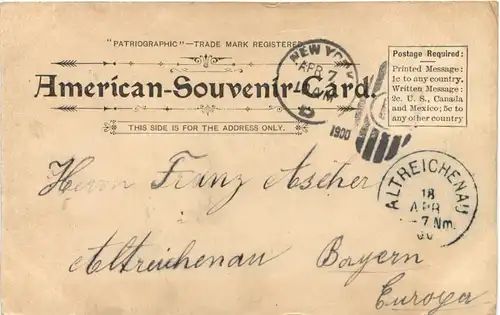 "PATRIOGRAPHIC"—TRADE MARK REGISTERED
American-Souvenir-Card.
THIS SIDE IS FOR THE ADDRESS ONLY.
NEW YORK
APR 7
1900
Postage Required:
Printed Message:
1c to any country.
Written Message:
2c. U. S., Canada
and Mexico; 5c to
any other country
ALTREICHENAU
18
APR
7 Nm.
00
Herrn Franz Ascher
Altreichenau Bayern
Europa